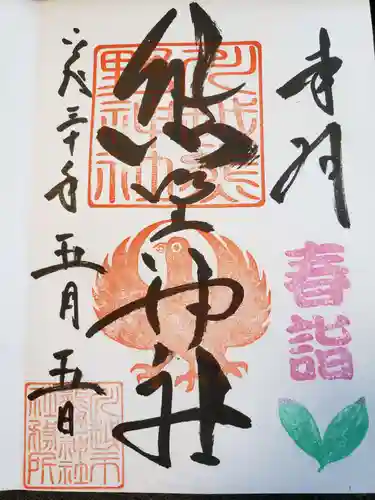 奉拝
春詣
熊野神社
平成三十年五月五日
川越熊野神社
川越市熊野神社社務所